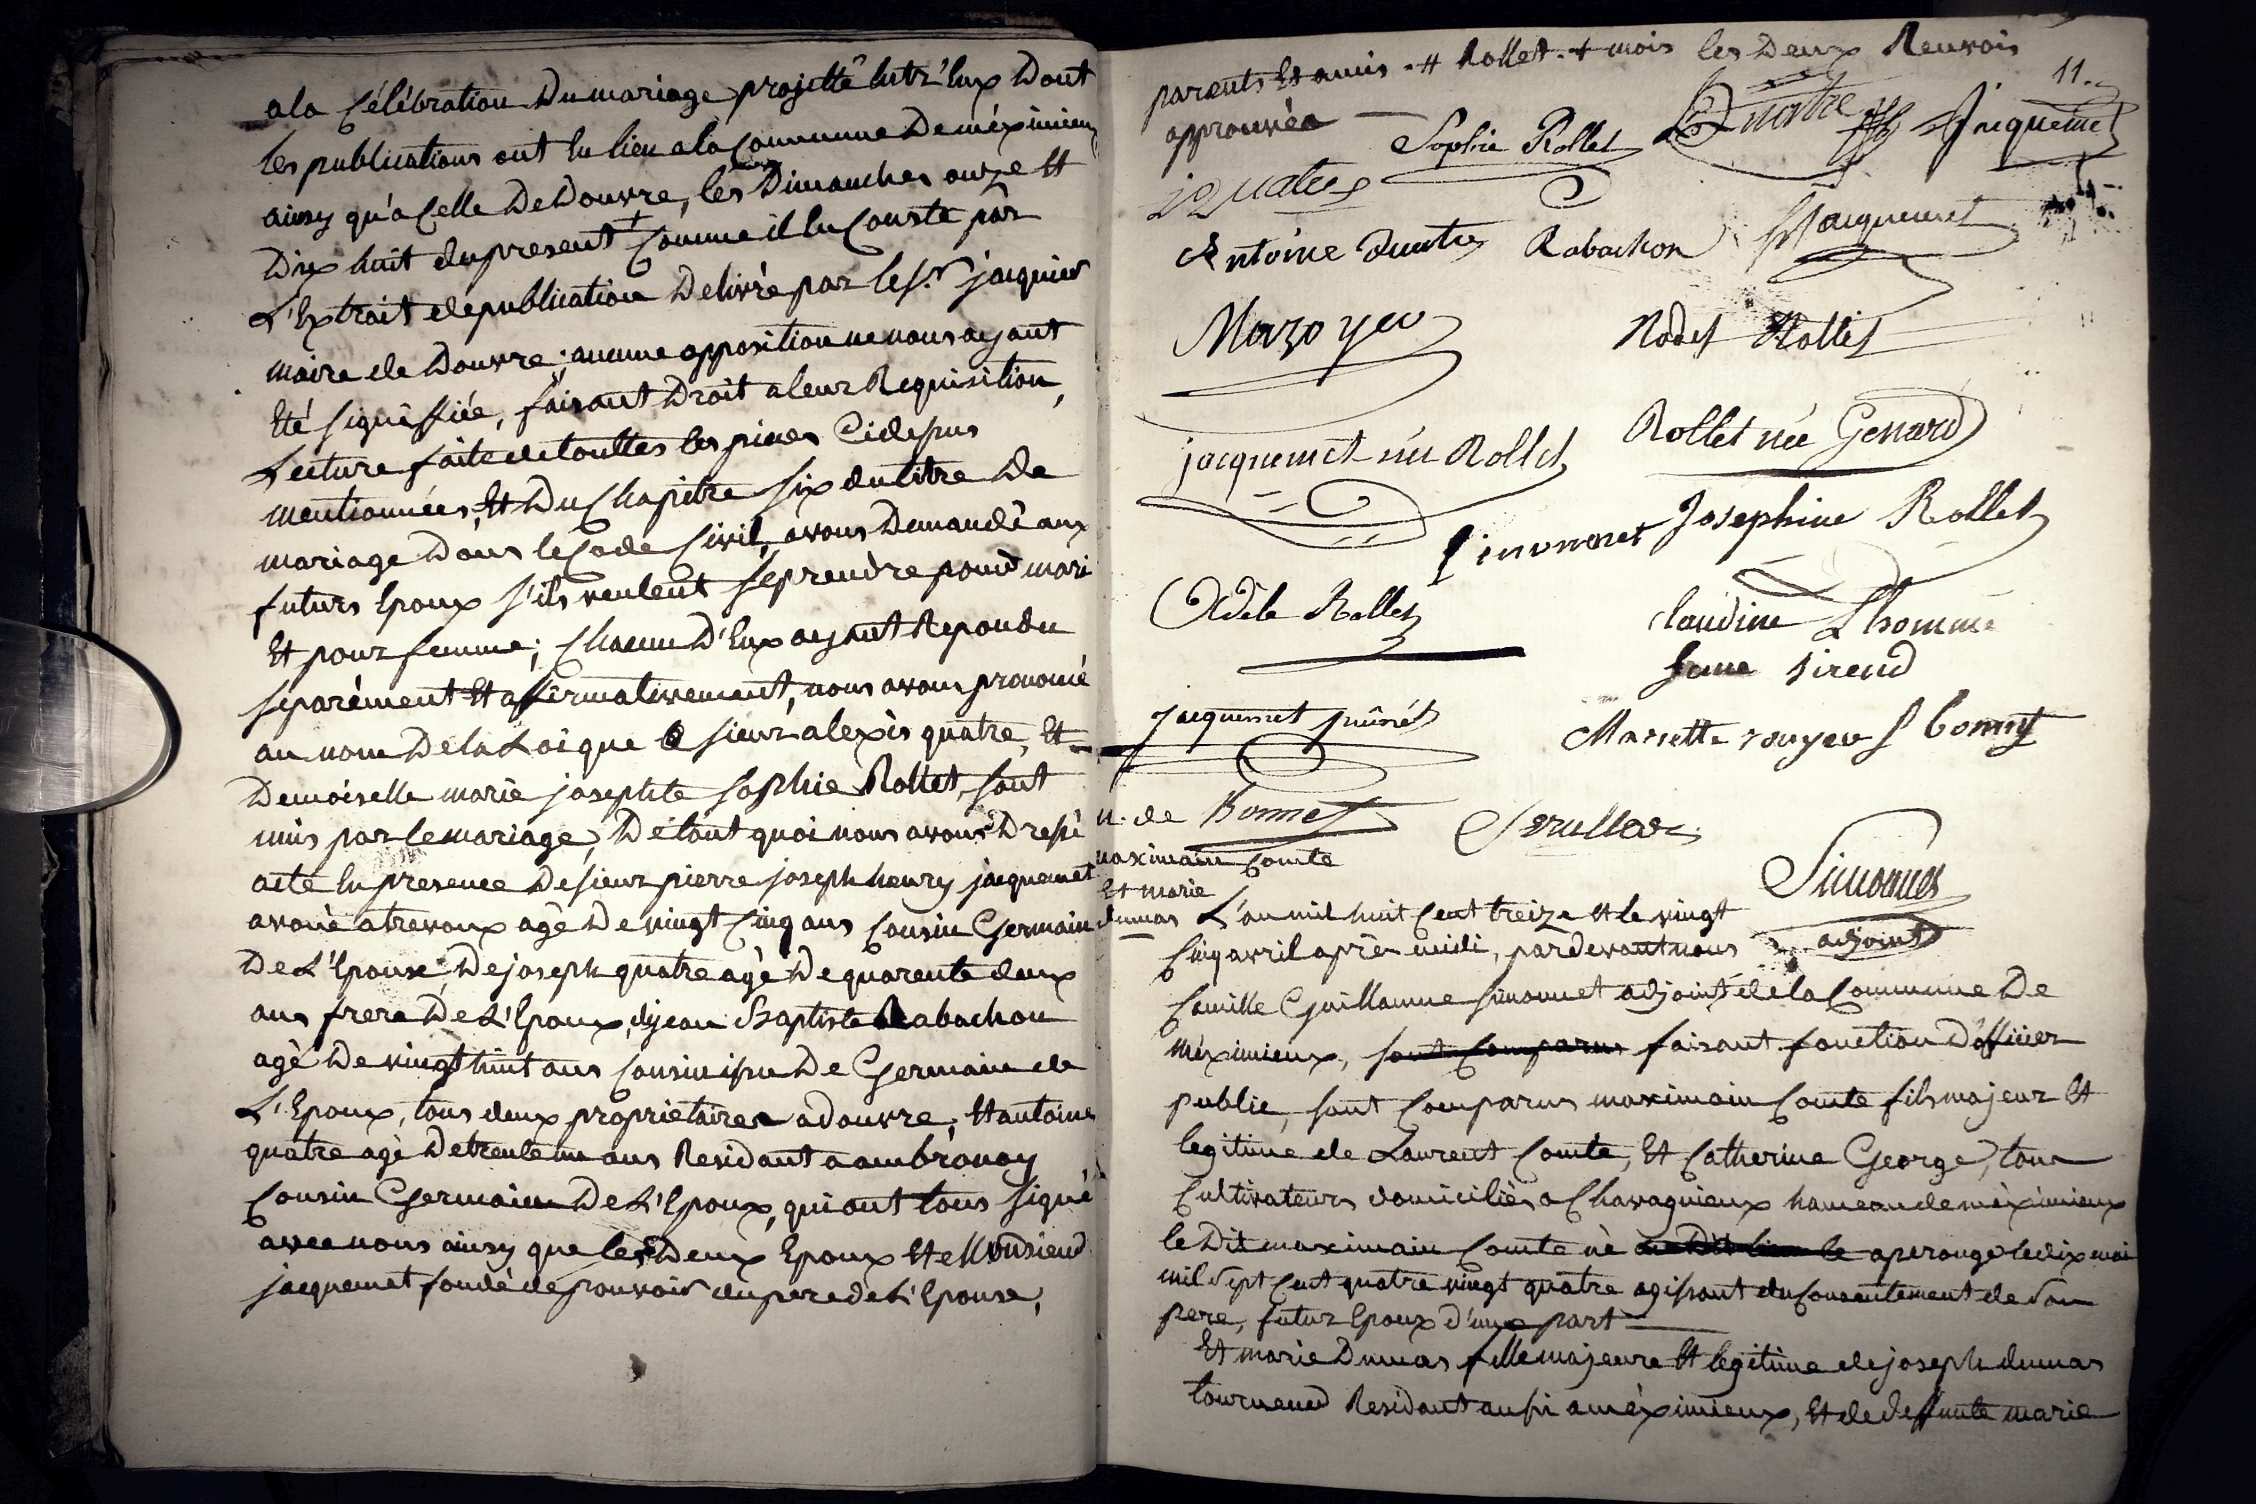 a la Célébration Du mariage projetté Entr'Eux Dont
les publications ont Eu lieu a la Commune De méximieux
ainsy qu'a Celle De Douvre, les Dimanches onze Et
Dix huit du present + Comme il En Conste par
L'Extrait de publication Delivré par le Sr. jacquier
maire de Douvre; aucune opposition ne nous ayant
Eté signiffiée, faisant Droit a leur Requisition,
Lecture faite de touttes les pieces Cidessus
mentionnées, Et Du Chapitre Six du titre De
mariage Dans le Code Civil, avons Demandé aux
futurs Epoux s'ils veulent se prendre pour mari
Et pour femme; Chacun D'Eux ayant Repondu
separément Et affirmativement, nous avons prononcé
au nom De la Loi que le sieur alexis quatre, Et
Demoiselle marie josephte Sophie Rollet, sont
unis par le mariage, De tout quoi nous avons Dressé
acte En presence De sieur pierre joseph henry jacquemet
avoué a trevoux agé De vingt Cinq ans Cousin Germain
De L'Epouse, De joseph quatre agé De quarente deux
ans frere De L'Epoux, De jean Baptiste Rabachon
agé De vingt huit ans Cousin issu De Germain de
L'Epoux, tous deux proprietaires a douvre, Et antoine
quatre agé De trente un ans Residant a ambronay
Cousin Germain De L'Epoux, qui ont tous signé
avec nous ainsy que les Deux Epoux Et Monsieur
jacquemet fondé de pouvoir du pere de L'Epouse,
parents Et amis .# Rollet .+ mois les Deux Renvois
11.
approuvés
Sophie Rollet Quatre Jacquemet
j quatre
Antoine Quatre Rabachon Jacquemet
Mazoyer Nodet Rollet
jacquemet née Rollet Rollet née Genard
Simonnet Josephine Rollet
Adèle Rollet Claudine Lhomme
Jacquemet Mariette
Bonnet
Simonnet
adjoint
M. de
maximain Comte
Et marie
dumas
L'an mil huit Cent treize Et le vingt
Cinq avril après midi, pardevant nous
Camille Guillaume simonnet adjoint de la Commune De
méximieux, sont Comparus faisant fonction D'officier
public, sont Comparus maximain Comte fils majeur Et
legitime de Laurent Comte, Et Catherine George, tous
Cultivateurs domiciliés a Chavagnieux hameau de méximieux
le Dit maximain Comte né au Dit lieu le a perouge le dix mai
mil Sept Cent quatre vingt quatre agissant du Consentement de Son
pere, futur Epoux d'une part
Et marie Dumas fille majeure Et legitime de joseph dumas
tourneur Residant aussi a méximieux, Et de deffunte marie